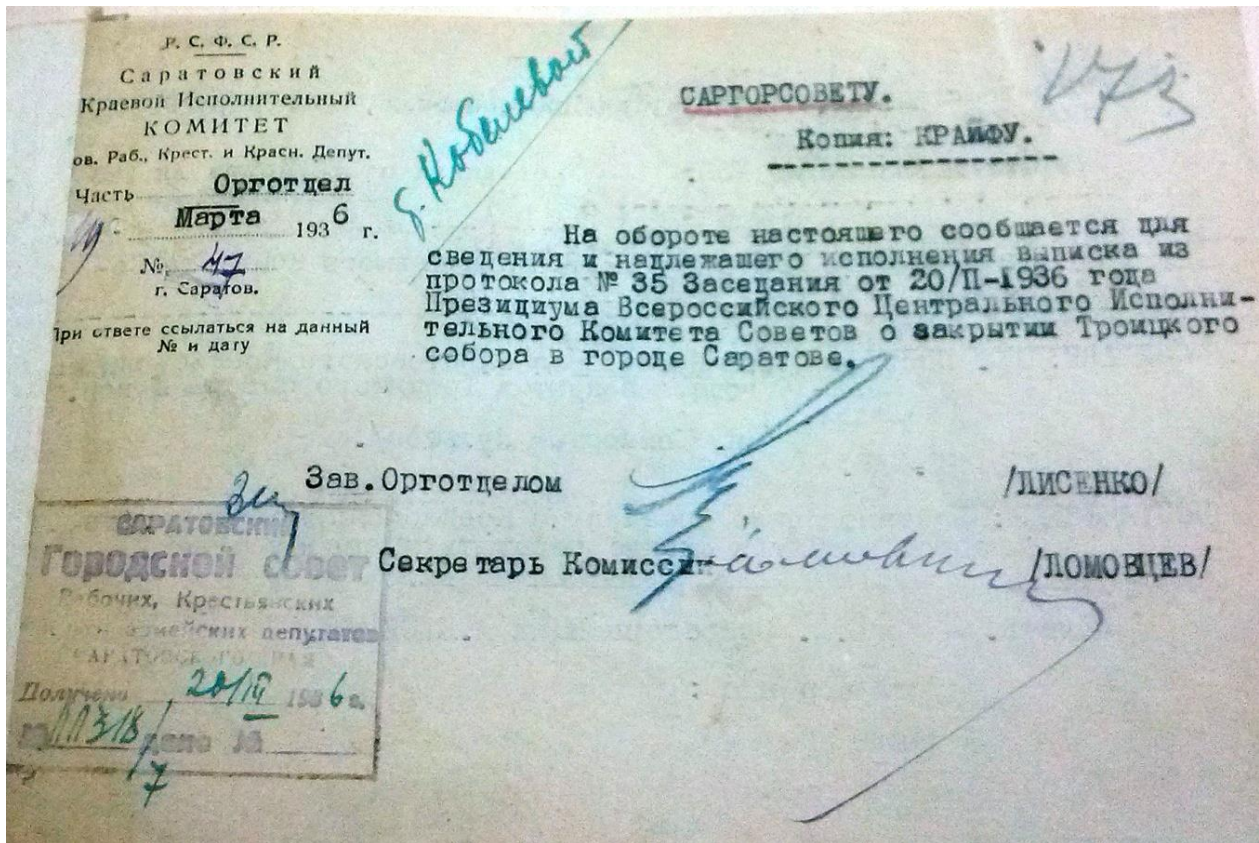 Р. С. Ф. С. Р.
Саратовский
Краевой Исполнительный
КОМИТЕТ
ов. Раб., Крест. и Красн. Депут.
Часть Орготдел
19 - Марта 1936 г.
№ 47
г. Саратов.
При ответе ссылаться на данный
№ и дату
б. Кобелевой
САРГОРСОВЕТУ.
Копия: КРАЙФУ.
На обороте настоящего сообщается для
сведения и надлежащего исполнения выписка из
протокола № 35 Заседания от 20/II-1936 года
Президиума Всероссийского Центрального Исполни-
тельного Комитета Советов о закрытии Троицкого
собора в городе Саратове.
Зав.Орготделом /ЛИСЕНКО/
Секретарь Комиссии /ЛОМОВЦЕВ/
САРАТОВСКИЙ
Городской совет
Рабочих, Крестьянских
армейских депутатов
САРАТОВСКОГО КРАЯ
Получено 20/III 1936 г.
дело №
7